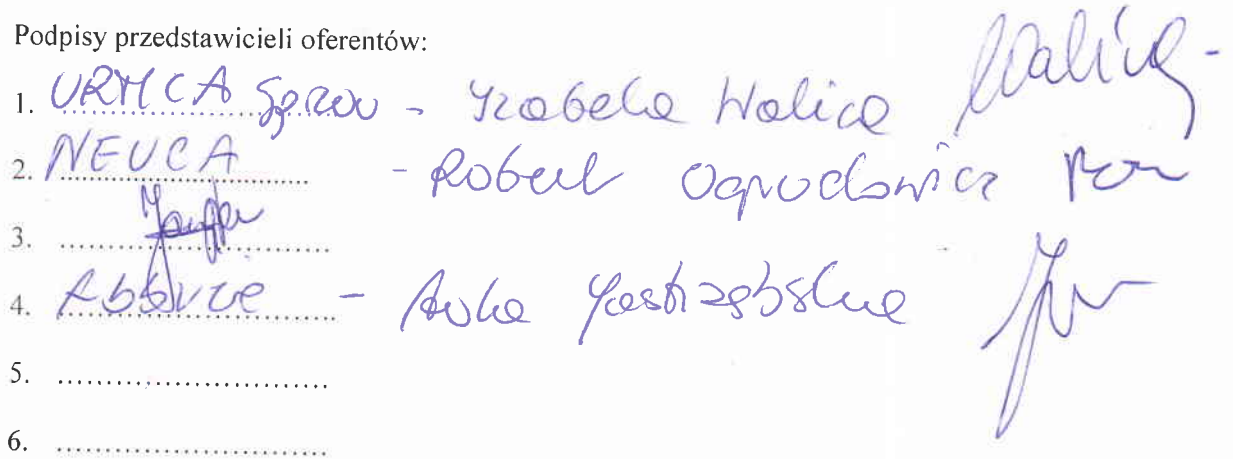 Podpisy przedstawicieli oferentów:
1. URTICA Sp. z o.o. - Izabela Walica
2. NEUCA - Robert Ogrodowicz
3. ..............................
4. - Anka Jastrzębska
5. ..............................
6. ..............................